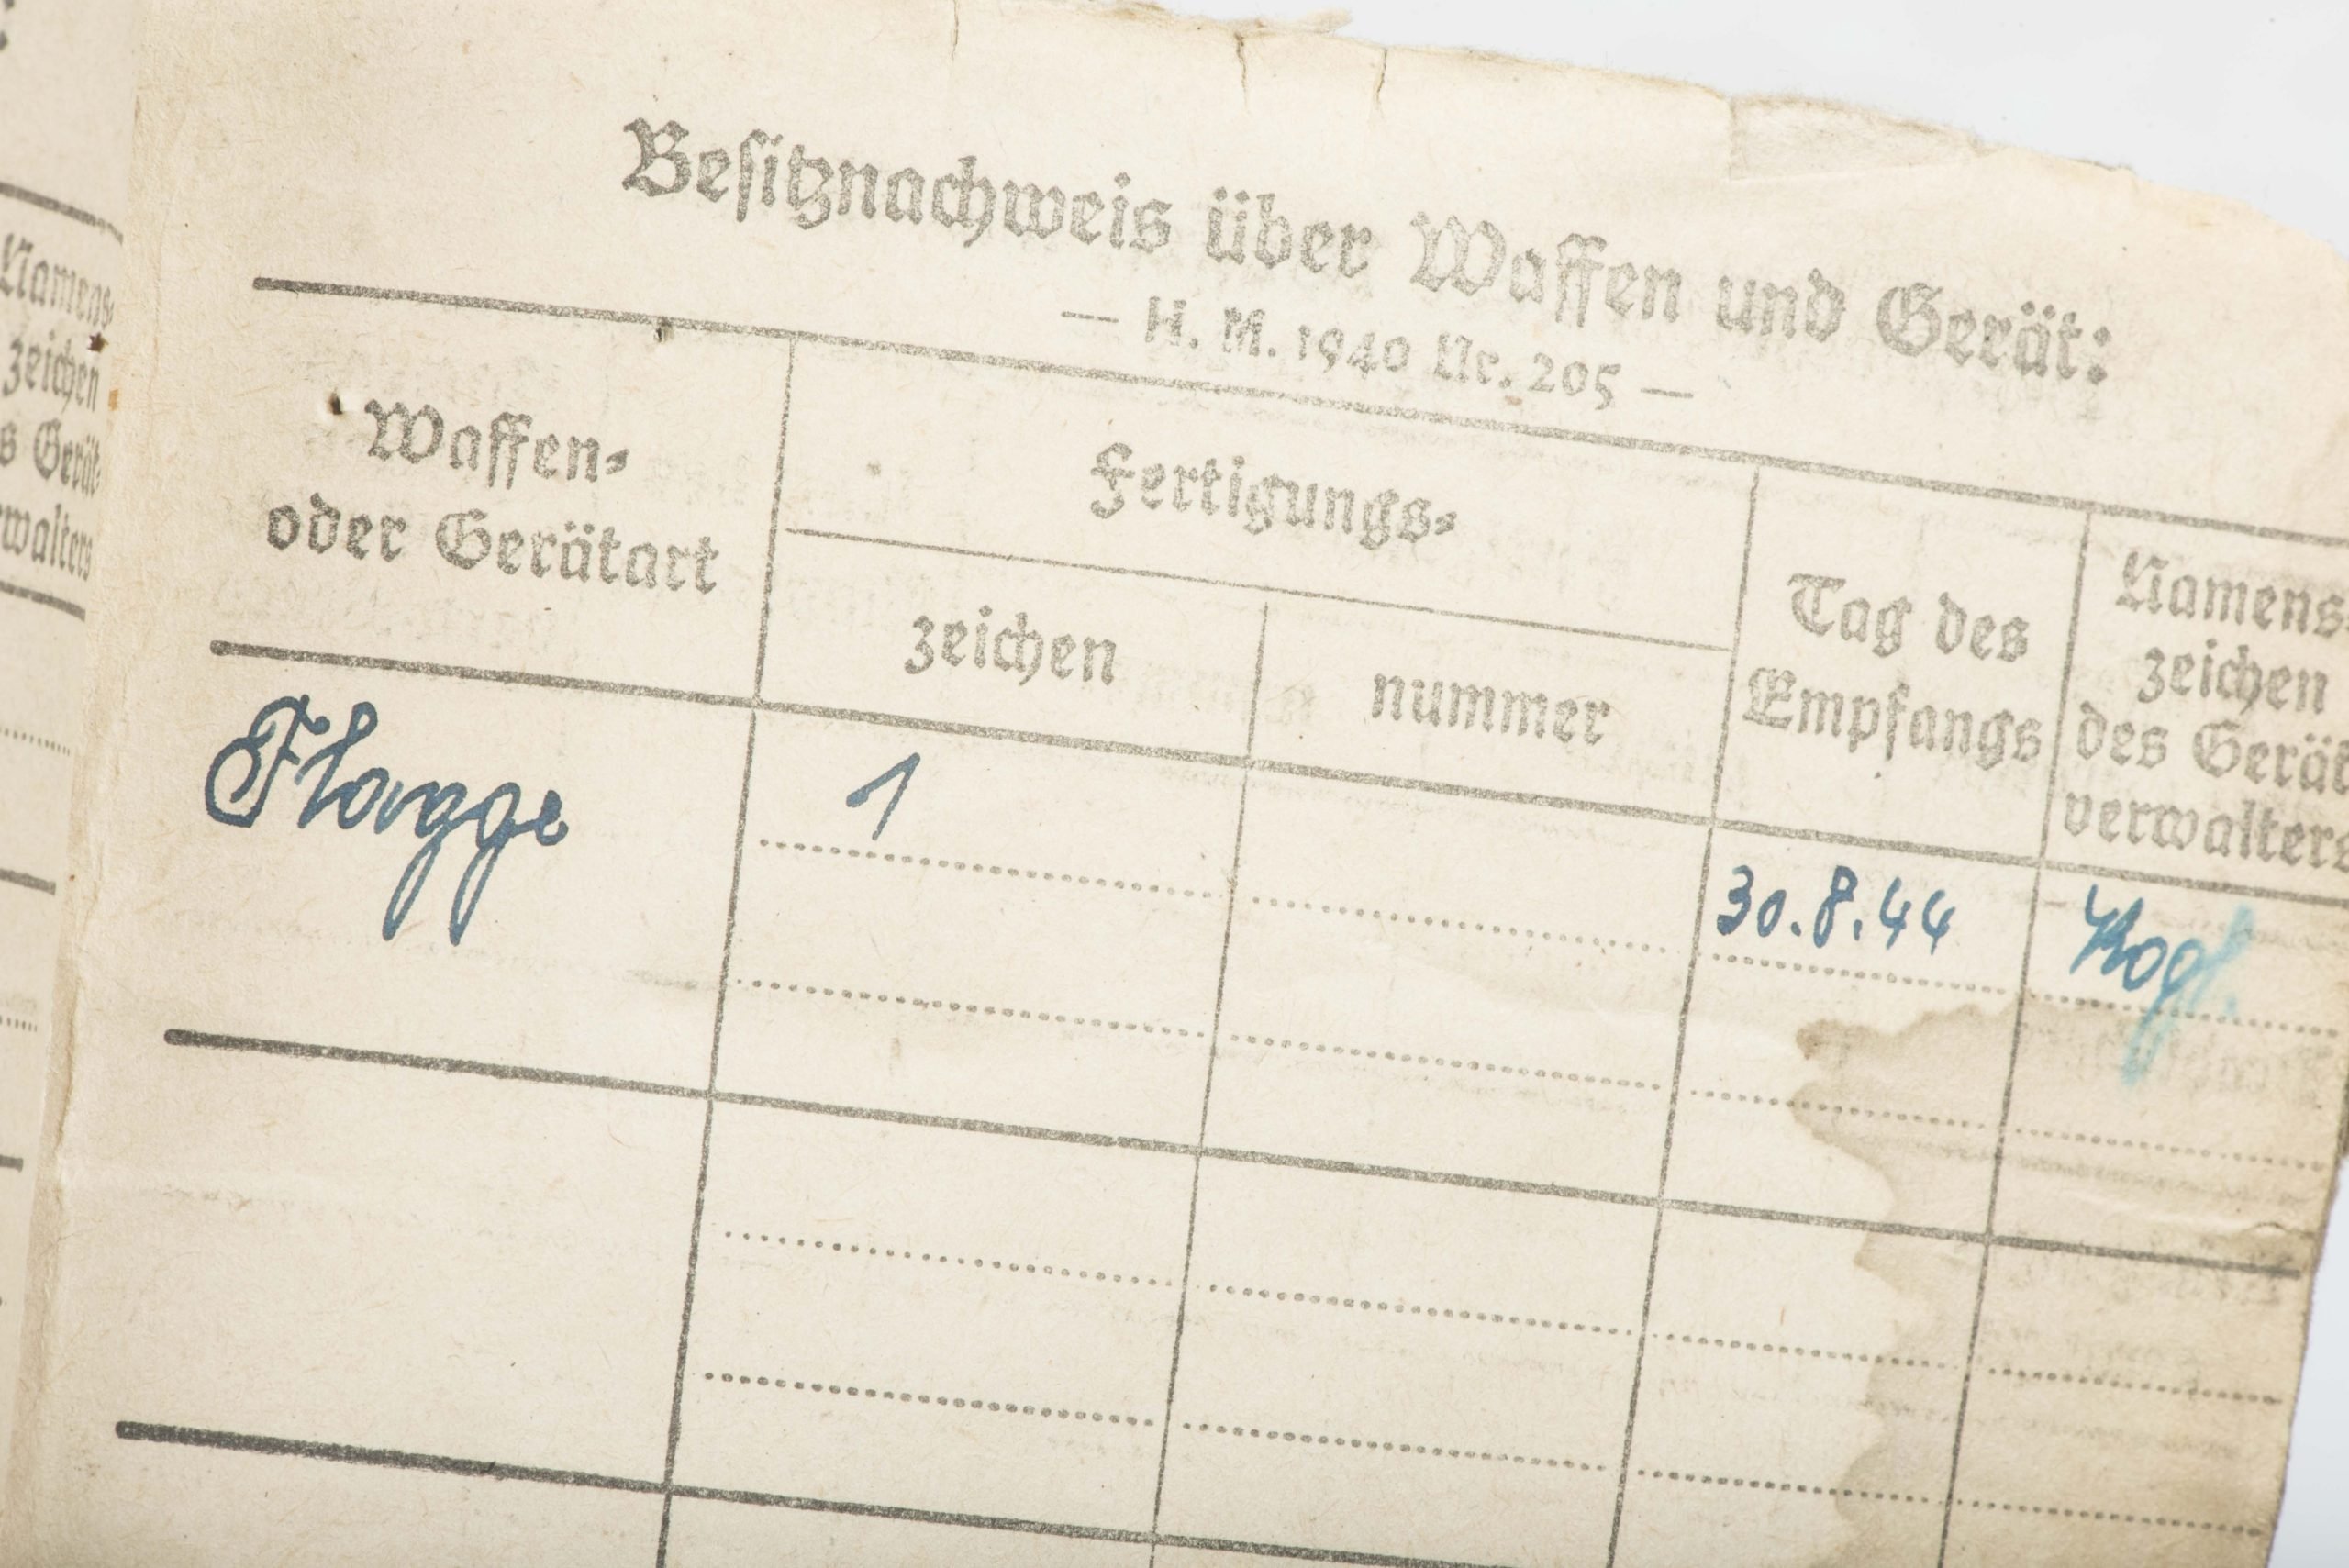 Namens-
zeichen
s Gerät-
rwalters
Besitznachweis über Waffen und Gerät:
— H. M. 1940 Nr. 205 —
Waffen-
oder Gerätart
Fertigungs-
zeichen
nummer
Tag des
Empfangs
Namens-
zeichen
des Gerät
verwalters
Flagge
1
30.8.44